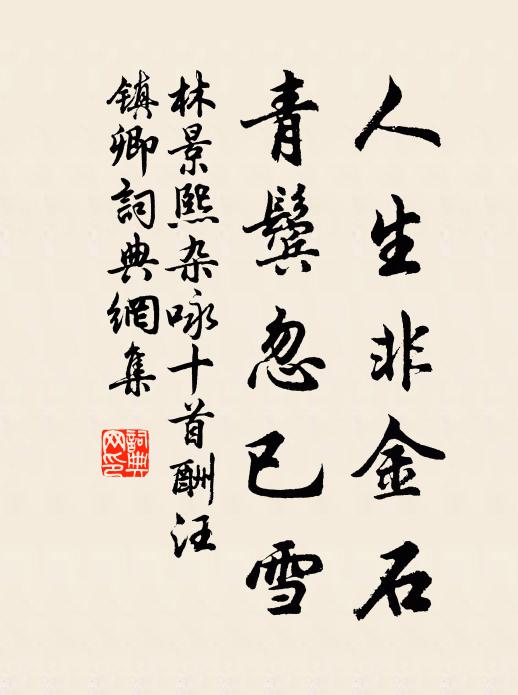 人生非金石
青鬓忽已雪
林景熙杂咏十首酬汪
镇卿詞典網集
詞典
网印